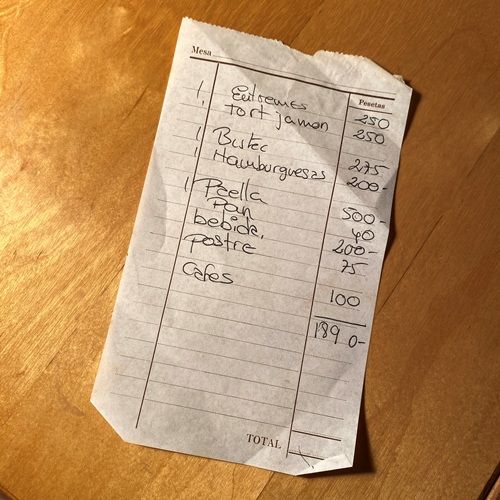 Mesa
Pesetas
1 Entremes 250
1 tort jamon 250
1 Bistec 275
1 Hamburguesas 200-
11 Paella 500-
Pan 40
bebida, 200-
postre 75
Cafes 100
1890-
TOTAL